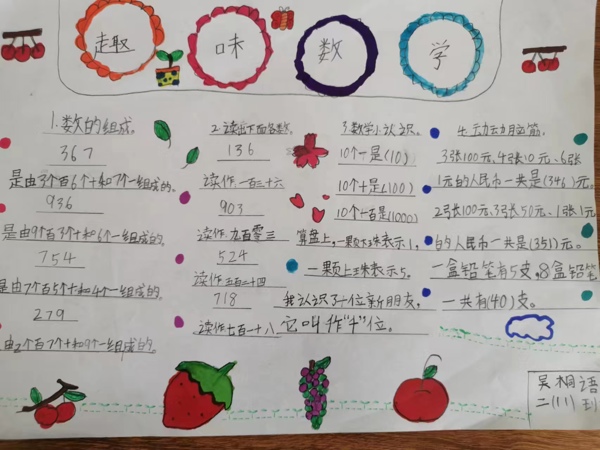 趣 味 数 学
1.数的组成。
367
是由3个百6个十和7个一组成的。
936
是由9个百3个十和6个一组成的。
754
是由7个百5个十和4个一组成的。
279
由2个百7个十和9个一组成的。
2.读出下面各数。
136
读作一百三十六
903
读作九百零三
524
读作五百二十四
718
读作七百一十八
3.数学小认识。
10个一是(10)
10个十是(100)
10个一百是(1000)
算盘上,一颗下珠表示1,
一颗上珠表示5。
我认识了一位新朋友,
它叫作“千”位。
4.元力元力月立算。
3张100元、4张10元、6张
1元的人民币一共是(346)元。
2张100元、3张50元、1张1元
的人民币一共是(351)元。
一盒铅笔有5支,8盒铅笔
一共有(40)支。
吴桐语
二(11)班